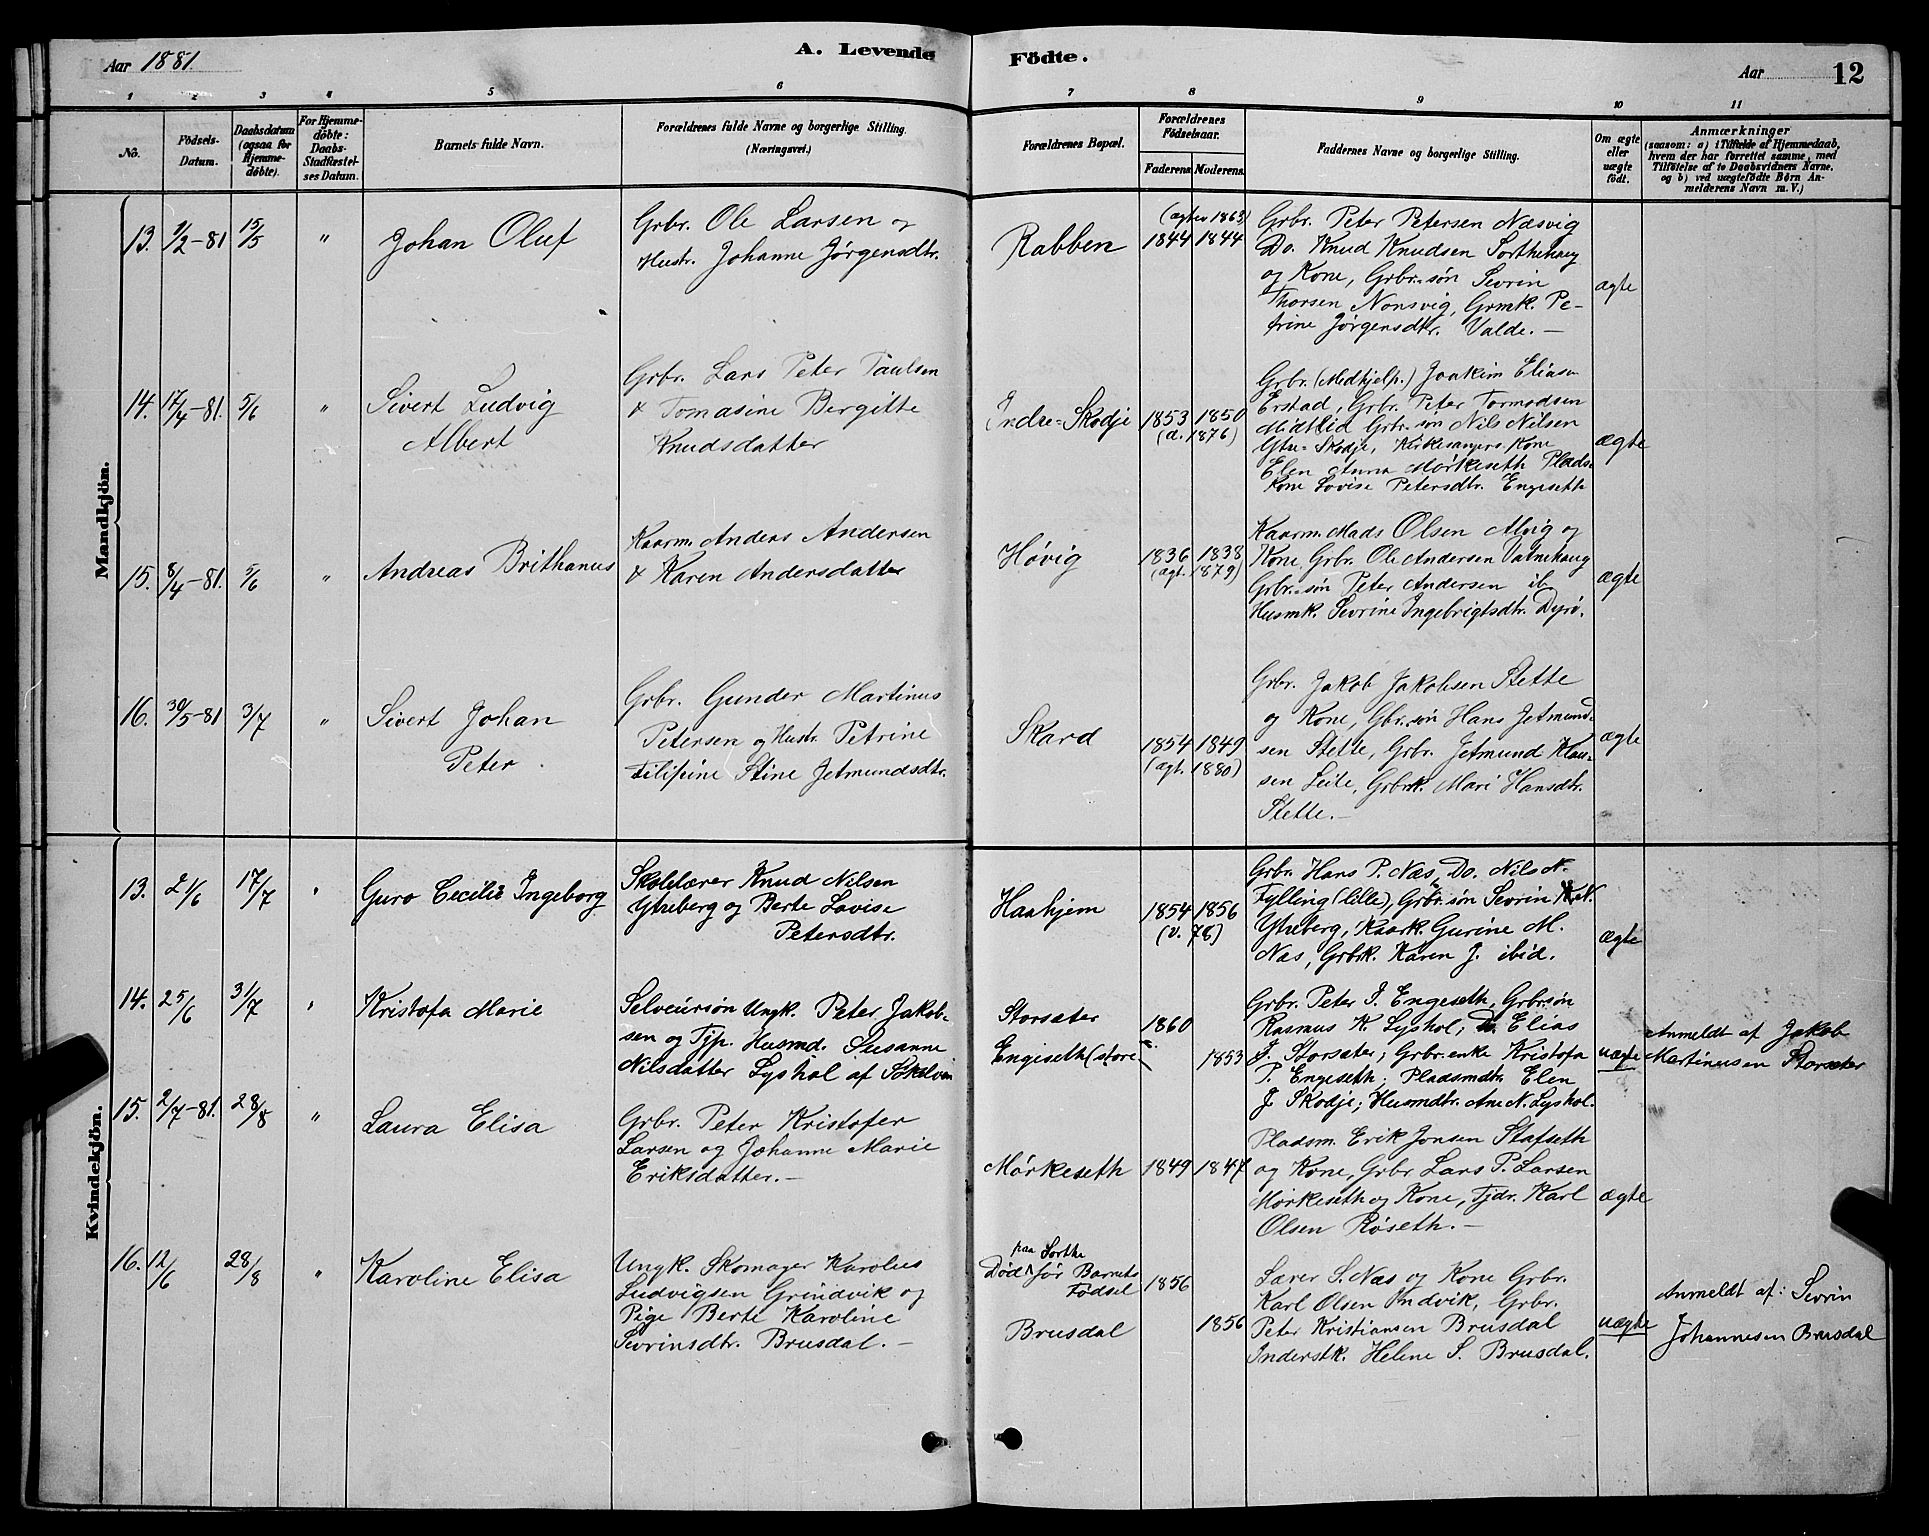 Aar 1881. A. Levende Födte. Aar 12
1 2 3 4 5 6 7 8 9 10 11
No. Födsels-Datum. Daabsdatum (ogsaa for Hjemme-döbte). For Hjemme-döbte: Daabs-Stadfæstel-ses Datum. Barnets fulde Navn. Forældrenes fulde Navne og borgerlige Stilling. (Næringsvei.) Forældrenes Bopæl. Forældrenes Födselsaar. Faderens Moderens Faddernes Navne og borgerlige Stilling. Om ægte eller uægte födt. Anmærkninger (saasom: a) i Tilfælde af Hjemmedaab, hvem der har forrettet samme, med Tilföielse af to Daabsvidners Navne, og b) ved uægtefödte Börn An-melderens Navn m. V.)
Mandkjön.
13. 1/2-81 15/5 " Johan Oluf
Grbr. Ole Larsen og
Hustr. Johanne Jørgensdtr.
Rabben
(ægtev 1863)
1844 1844
Grbr. Peter Petersen Næsvig
Do. Knud Knudsen Sorthehaug
og Kone, Grbr.søn Sevrin
Thorsen Nonsvig, Grmk. Pe-
trine Jørgensdtr. Valde. —
ægte
14. 17/4-81. 5/6 " Sivert Ludvig
Albert
Grbr. Lars Peter Paulsen
& Tomasine Bergitte
Knudsdatter
Indre-Skodje
1853 1850
(v. 1876)
Grbr. (Medhjelp.) Joakim Elias
Erstad, Grbr. Peter Tormodsen
Midtlid Grbr.søn Nils Nilsen
Ytre-Skodje, Kirkesangers Kone
Elen Anna Mørkeseth Plads-
Kone Lovise Petersdtr. Engeseth
ægte
15. 8/4-81. 5/6 " Andreas Brithanus
Kaarm. Anders Andersen
& Karen Andersdatter
Høvig
1836 1838
(ægt. 1879)
Kaarm. Mads Olsen Alvig og
Kone, Grbr. Ole Andersen Vatnehaug
Grbr.søn Peter Andersen ib
Husmk. Sevrine Ingebrigtsdtr. Dyrø.
ægte
16. 30/5-81 3/7 " Sivert Johan
Peter.
Grbr. Gunder Martinus
Petersen og Hustr. Petrine
Filipine Stine Jetmundsdtr.
Skard
1854 1849
(ægt. 1880)
Grbr. Jakob Jakobsen Stette
og Kone, Gbr.søn Hans Jetmund-
sen Stette, Grbr. Jetmund Klau-
sen Leite, Grbrk. Mari Hansdtr.
Stette. —
ægte
Kvindekjön.
13. 21/6 17/7 " Guro Cecilie Ingeborg
Skolelærer Knud Nilsen
Ytreberg og Berte Lovise
Petersdtr.
Haahjem
1854 1856
(v. 78)
Grbr. Hans P. Næs, Do. Nils N.
Fylling (lille), Grbr.søn Sevrin K. N.
Ytreberg, Kaark. Gurine M.
Næs, Grbrk. Karen J. ibid.
ægte
14. 25/6 31/7 " Kristofa Marie
Selveiersøn Ungk. Peter Jakob-
sen og Tjp. Husmd. Susanne
Nilsdatter Lyshol af Søkelven
Storsæter
Engeseth (store)
1860
1853
Grbr. Peter J. Engeseth, Grbrsøn
Rasmus K. Lyshol; Do. Elias
J. Storsæter; Grbr.enke Kristofa
P. Engeseth; Pladsmdtr. Elen
J. Skodje; Husmdtr. Ane N. Lyshol.
uægte
Anmeldt af Jakob
Martinussen Storsæter
15. 2/7-81. 28/8 " Laura Elisa
Grbr. Peter Kristofer
Larsen og Johanne Marie
Eriksdatter. —
Mørkeseth
1849 1847
Pladsm. Erik Jonsen Stafseth
og Kone, Grbr Lars P. Larsen
Mørkeseth og Kone, Tjdr. Karl
Olsen Røseth. —
ægte
16. 12/6 28/8 " Karoline Elisa
Ungk. Skomager Karolus
Ludvigsen Grindvik og
Pige Berte Karoline
Sevrinsdtr. Brusdal. —
paa Sorthe
Død før Barnets
Fødsel
Brusdal
1856
1856
Lærer S. Næs og Kone Grbr.
Karl Olsen Indvik, Grbr.
Peter Kristiansen Brusdal
Inderstk. Helene S. Brusdal.
uægte
Anmeldt af: Sevrin
Johannesen Brusdal